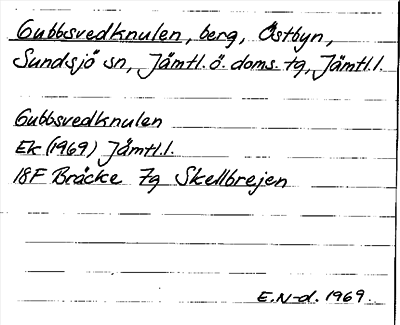 Gubbsvedknulen, berg, Östbyn,
Sundsjö sn, Jämtl. ö. doms. tg, Jämtl.l.
Gubbsvedknulen
Ek (1969) Jämtl.l.
18F Bräcke 7g Skellbrejen
E.N-d. 1969.